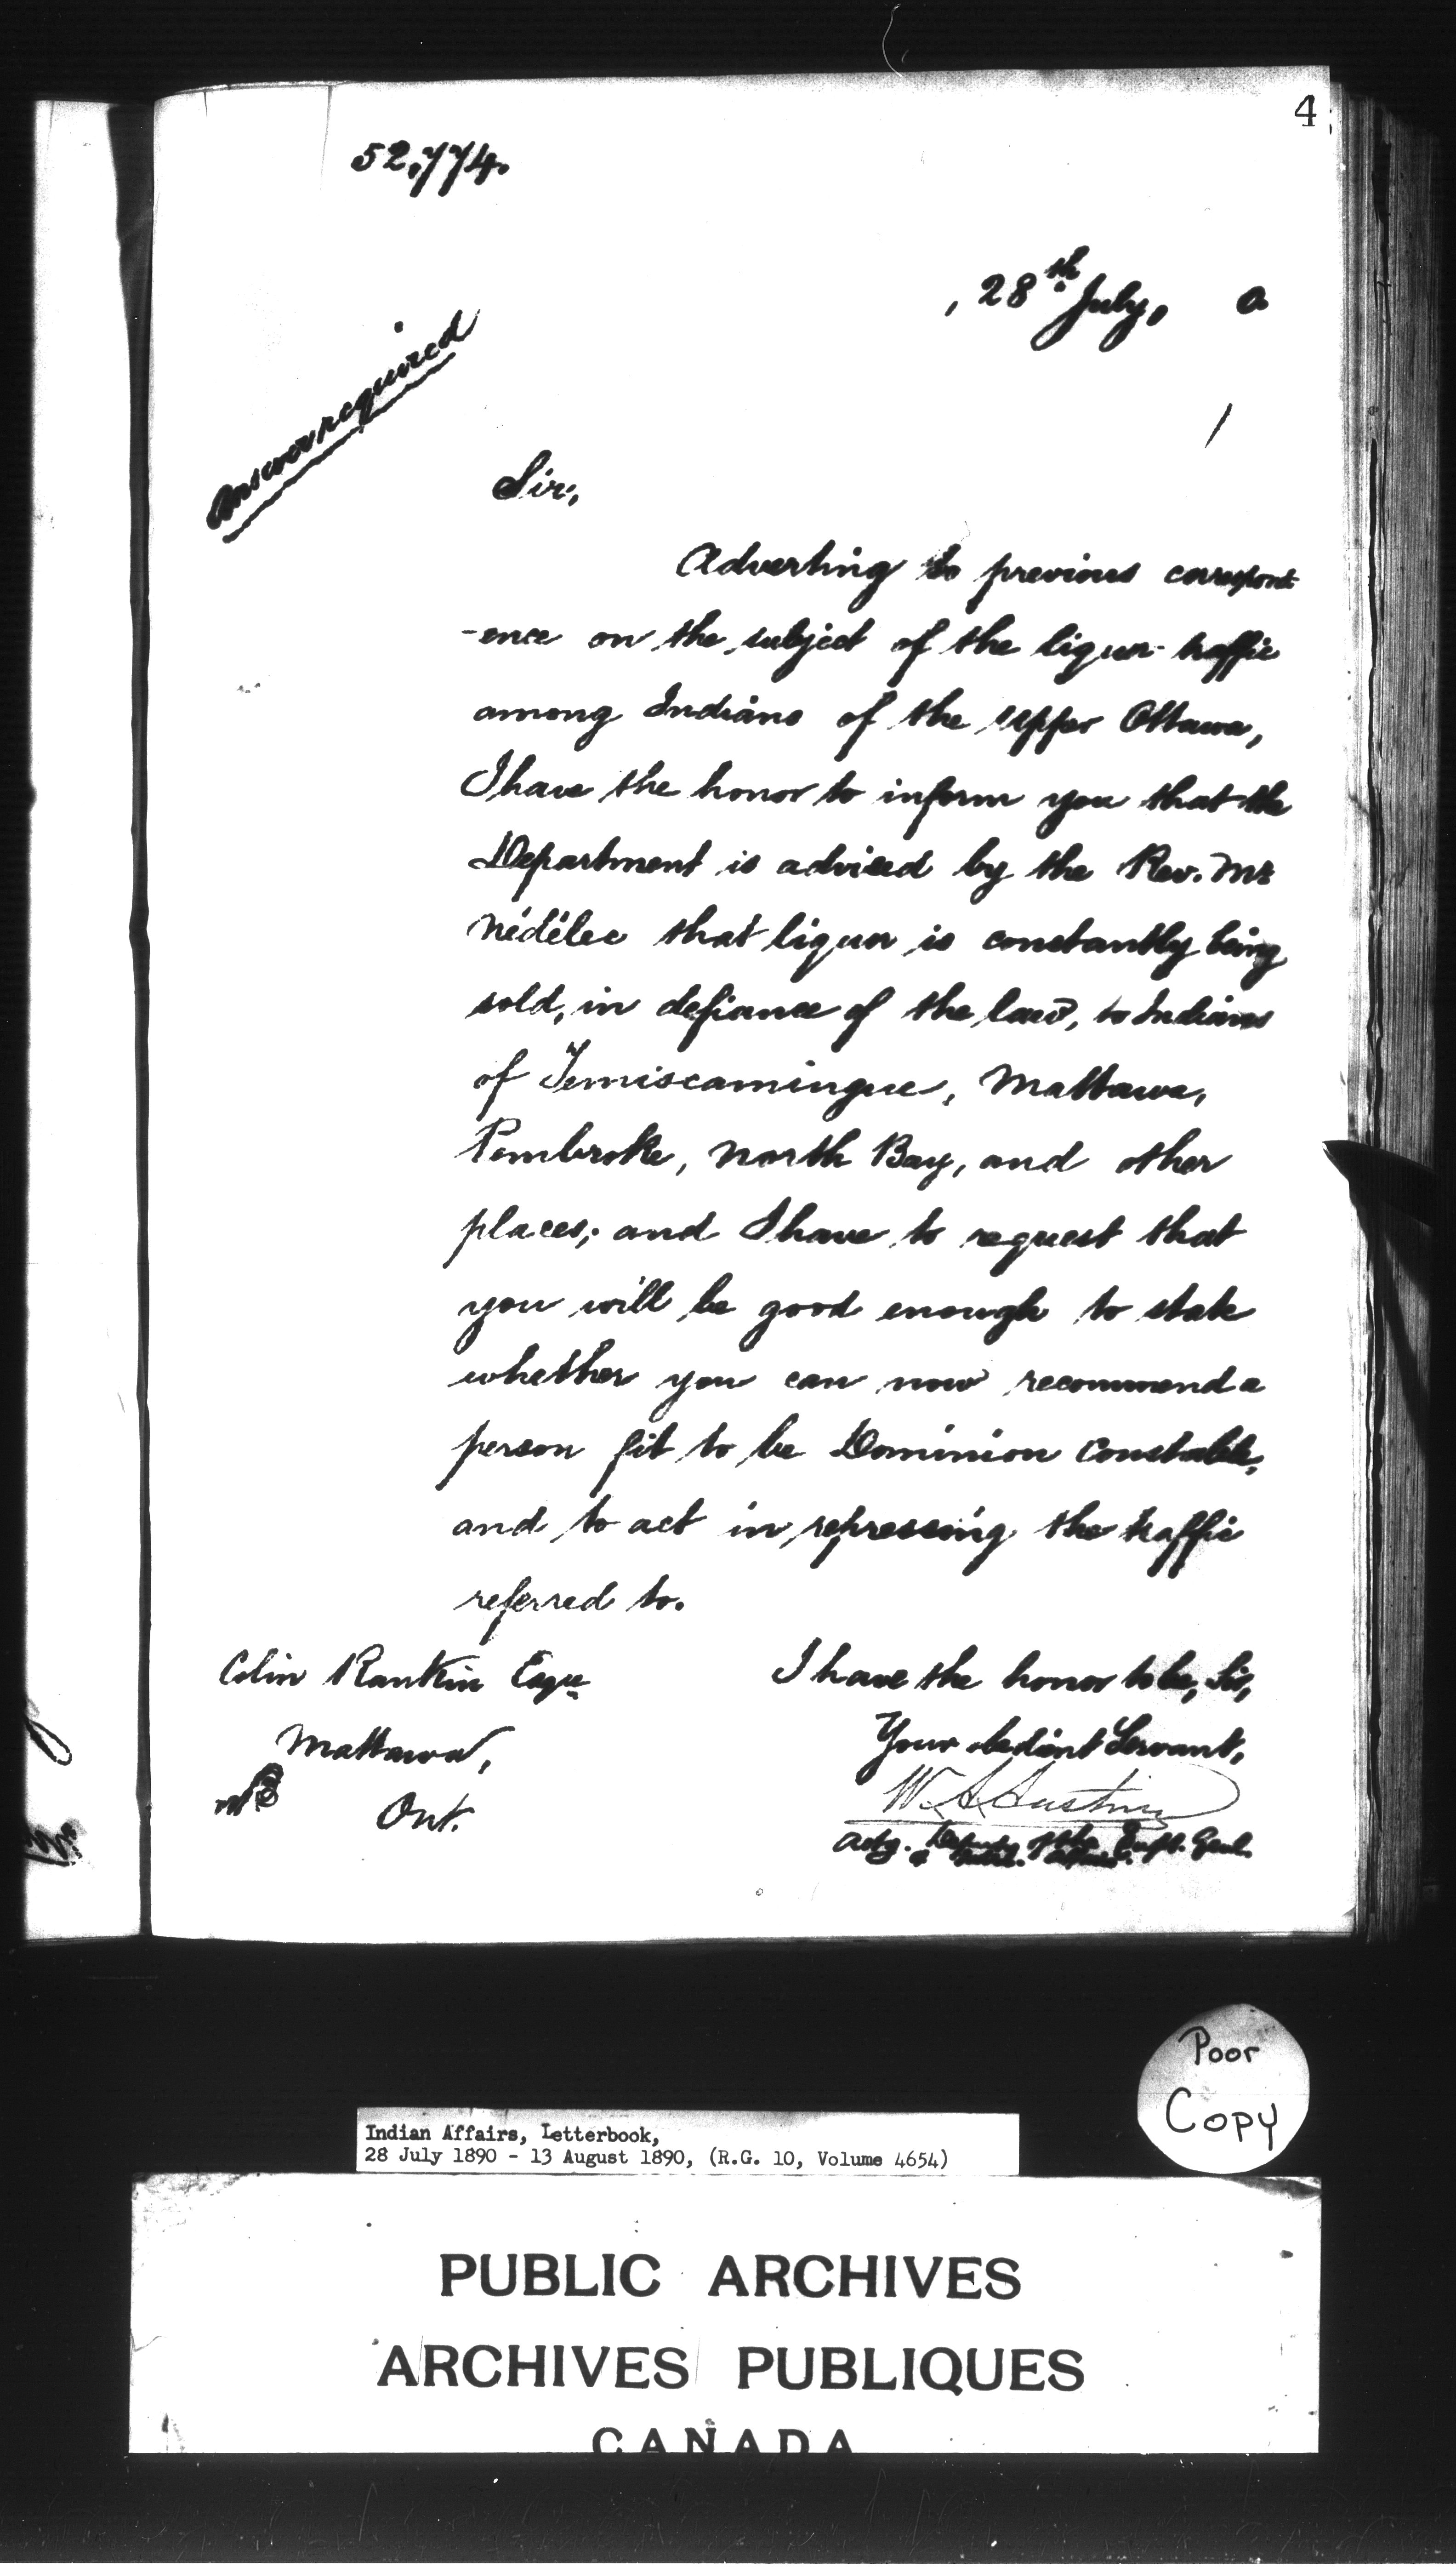 4
52,774.
, 28th July, 0
Answer required
Sir,
Adverting to previous correspond
-ence on the subject of the liquor traffic
among Indians of the upper Ottawa,
I have the honor to inform you that the
Department is advised by the Rev. Mr
Nédélec that liquor is constantly being
sold, in defiance of the law, to Indians
of Temiscamingue, Mattawa,
Pembroke, North Bay, and other
places; and I have to request that
you will be good enough to state
whether you can now recommend a
person fit to be Dominion Constable,
and to act in repressing the traffic
referred to.
I have the honor to be, Sir,
Your obedient Servant,
W. A. Austin
Actg. Deputy of the Supt. Genl.
Colin Rankin Esqre
Mattawa,
Ont.
Poor
Copy
Indian Affairs, Letterbook,
28 July 1890 - 13 August 1890, (R.G. 10, Volume 4654)
PUBLIC ARCHIVES
ARCHIVES PUBLIQUES
CANADA